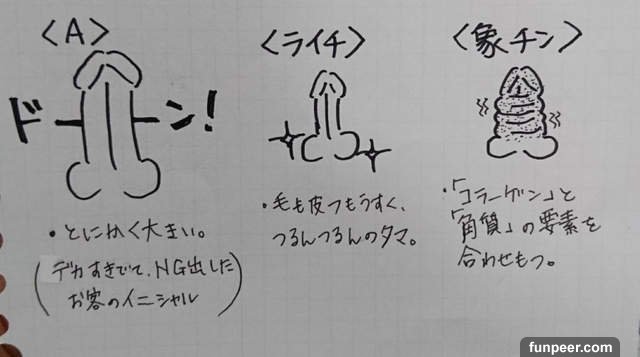 〈A〉
ドーン!
・とにかく大きい。
(デカすぎて、NG出した
お客のイニシャル)
〈ライチ〉
・毛も皮つもうすく、
つるんつるんのタマ。
〈象チン〉
・「コラーゲン」と
「角質」の要素を
合わせもつ。
funpeer.com